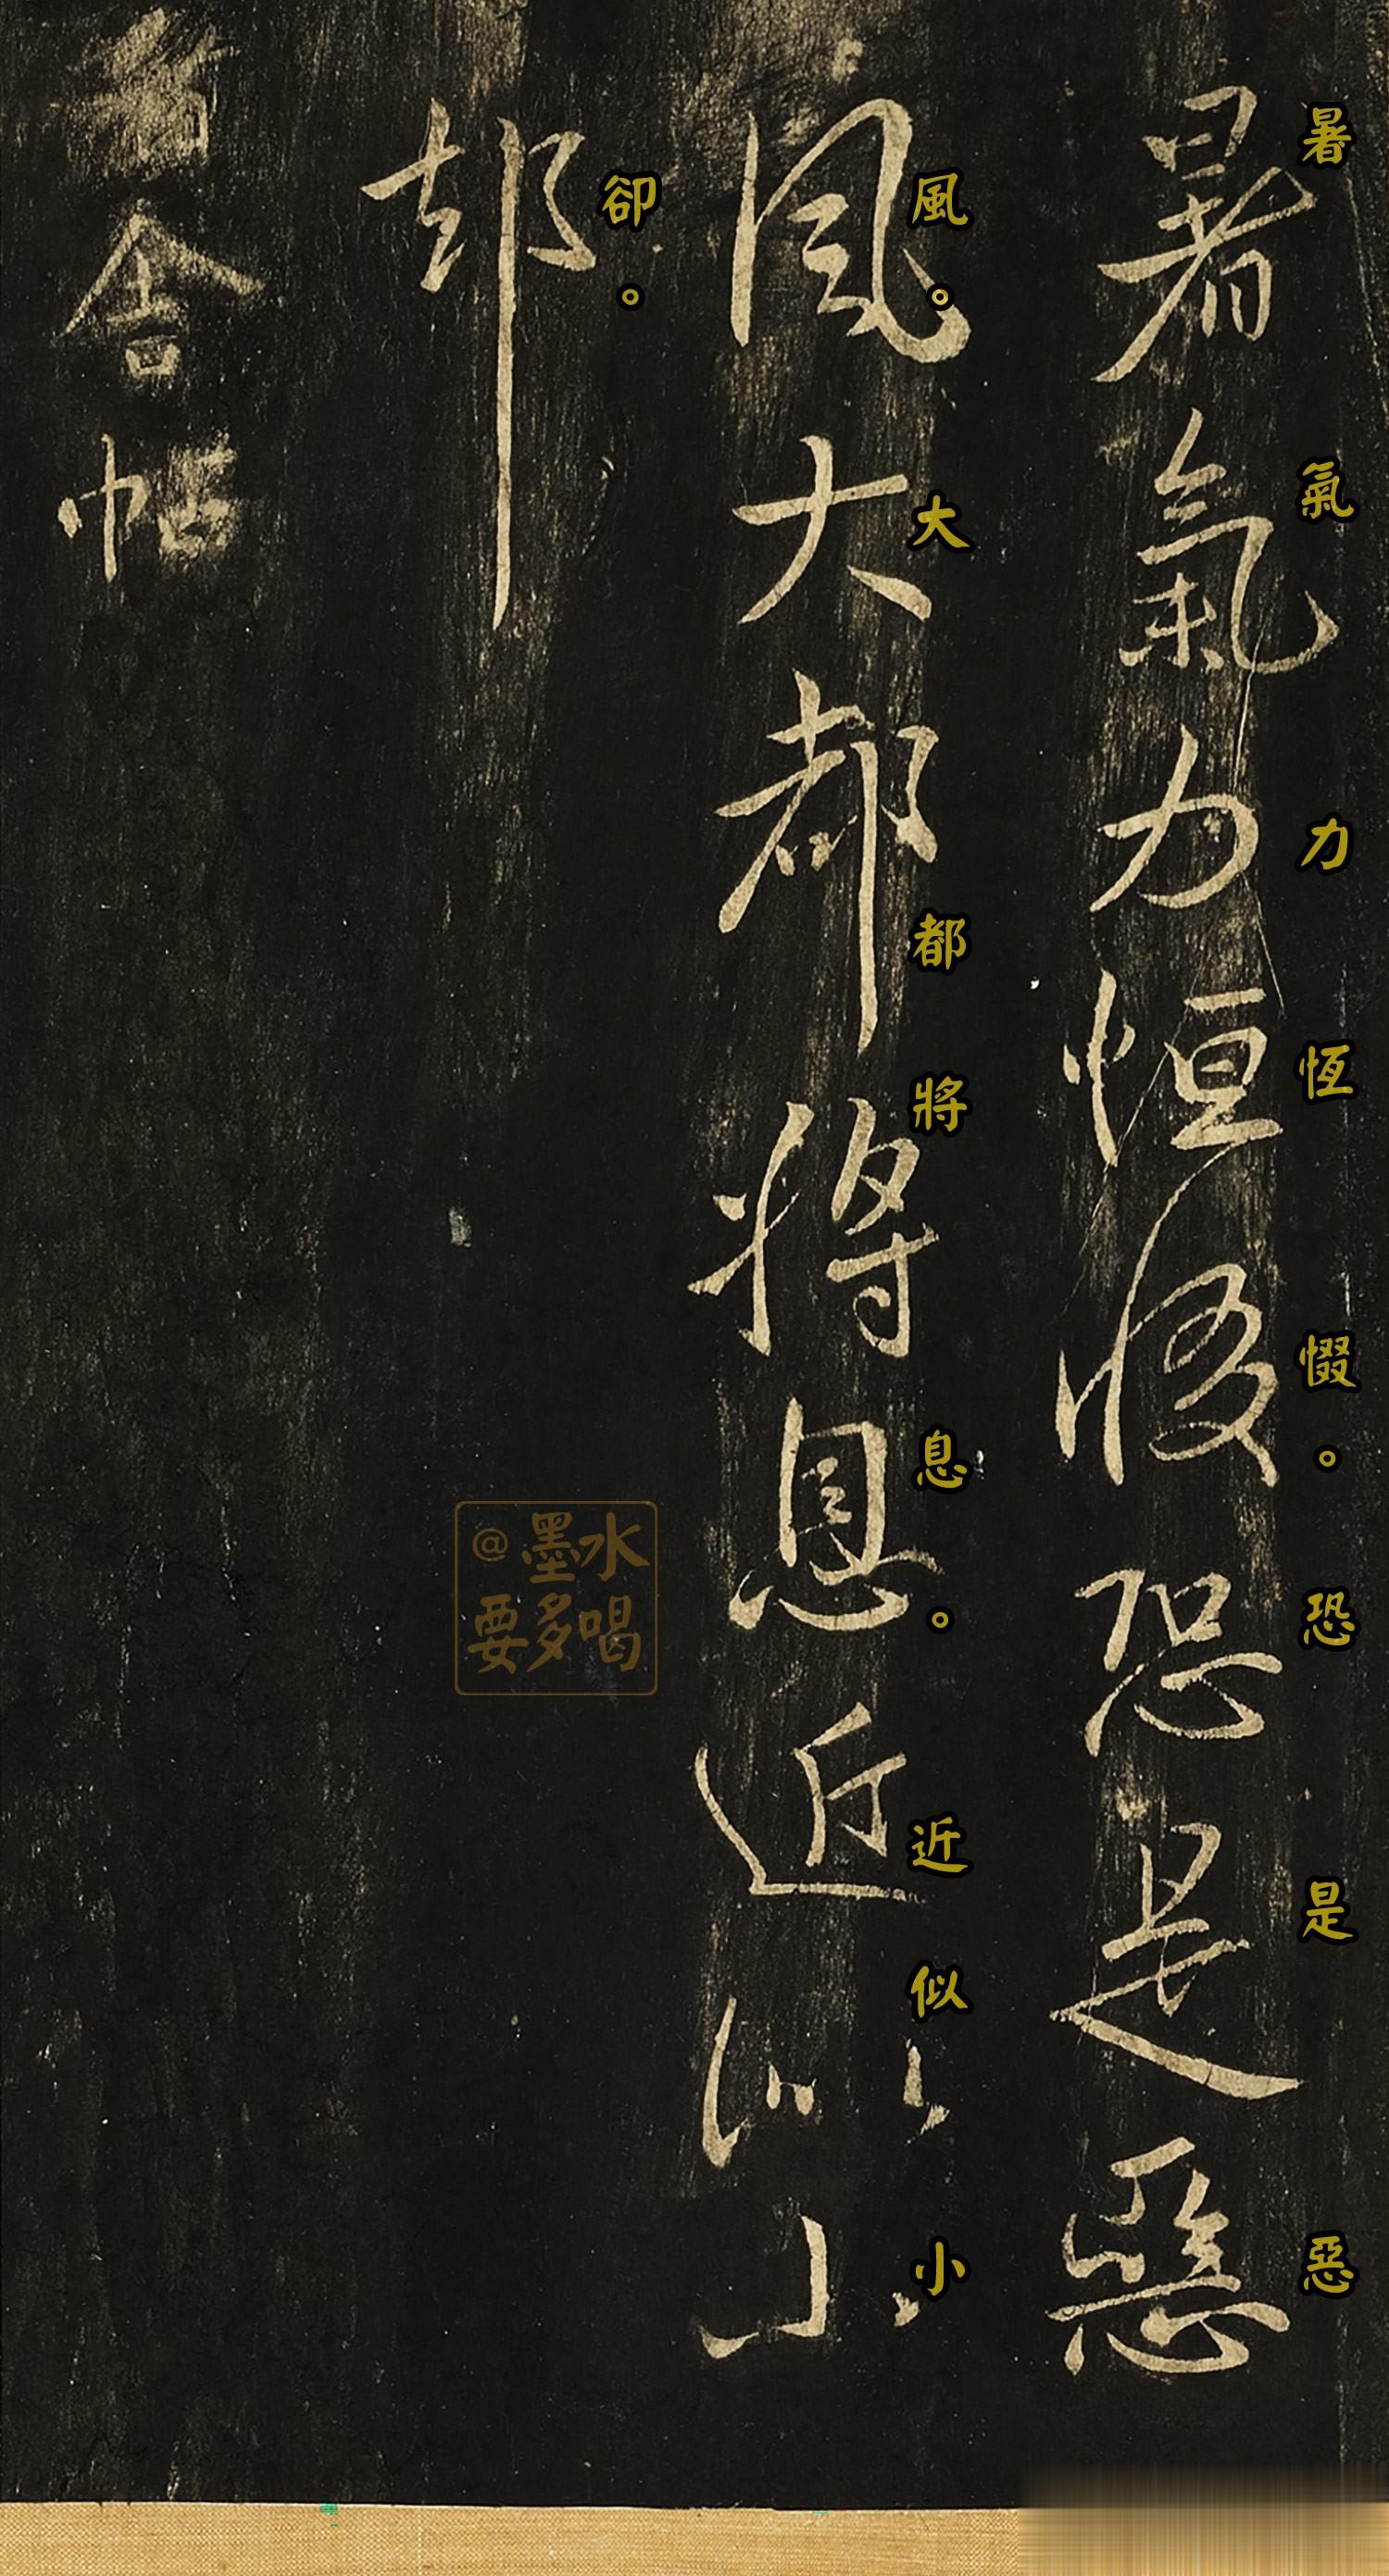 暑氣力恆惙。恐是惡
暑氣力恒惙恐是惡
風。大都將息。近似小
風大都將息近似小
卻。
却
舍帖
@墨水
要多喝